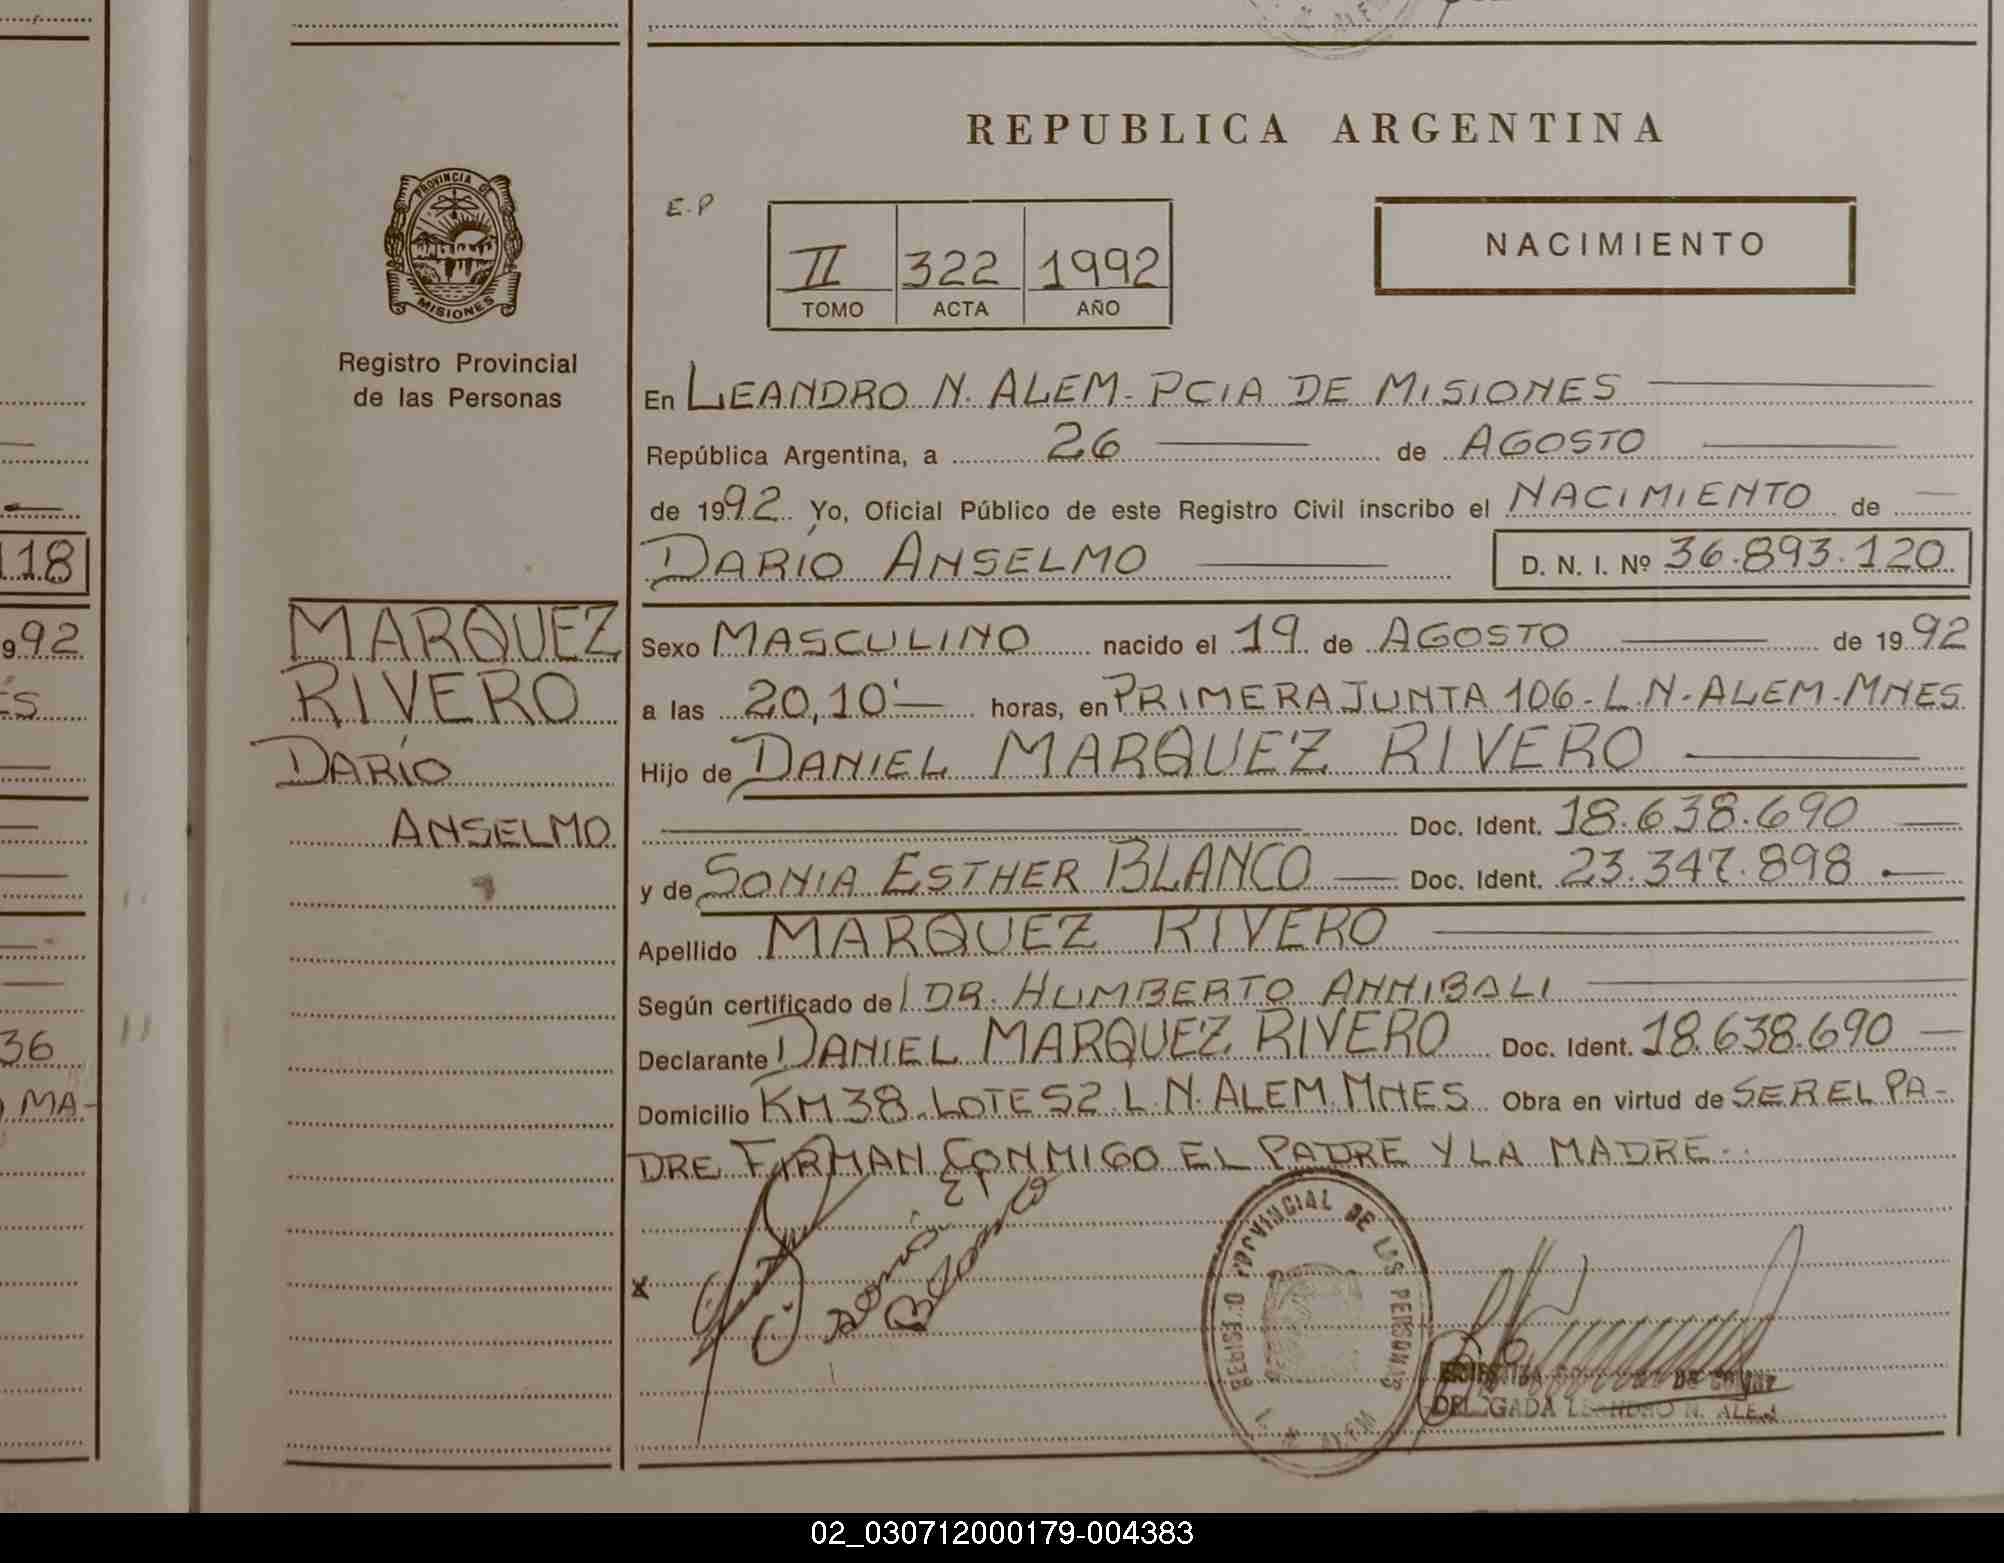 REPUBLICA ARGENTINA
PROVINCIA DE
MISIONES
Registro Provincial
de las Personas
E.P
II 322 1992
TOMO ACTA AÑO
NACIMIENTO
En LEANDRO N. ALEM-PCIA DE MISIONES
República Argentina, a 26 de AGOSTO
de 1992 Yo, Oficial Público de este Registro Civil inscribo el NACIMIENTO de
DARÍO ANSELMO D. N. I. Nº 36.893.120
MARQUEZ
RIVERO
DARÍO
ANSELMO
Sexo MASCULINO nacido el 19 de AGOSTO de 1992
a las 20,10' horas, en PRIMERA JUNTA 106-L.N-ALEM-MNES
Hijo de DANIEL MARQUEZ RIVERO
Doc. Ident. 18.638.690
y de SONIA ESTHER BLANCO Doc. Ident. 23.347.898
Apellido MARQUEZ RIVERO
Según certificado de DR. HUMBERTO ANNIBALI
Declarante DANIEL MARQUEZ RIVERO Doc. Ident. 18.638.690
Domicilio KM 38 LOTE 52 L.N. ALEM MNES Obra en virtud de SER EL PA-
DRE FIRMAN CONMIGO EL PADRE Y LA MADRE
Sonia E.
Blanco
REGISTRO PROVINCIAL DE LAS PERSONAS
L. N. ALEM
DELEGADA LEANDRO N. ALEM
118
992
ES
36
MA-
02_030712000179-004383